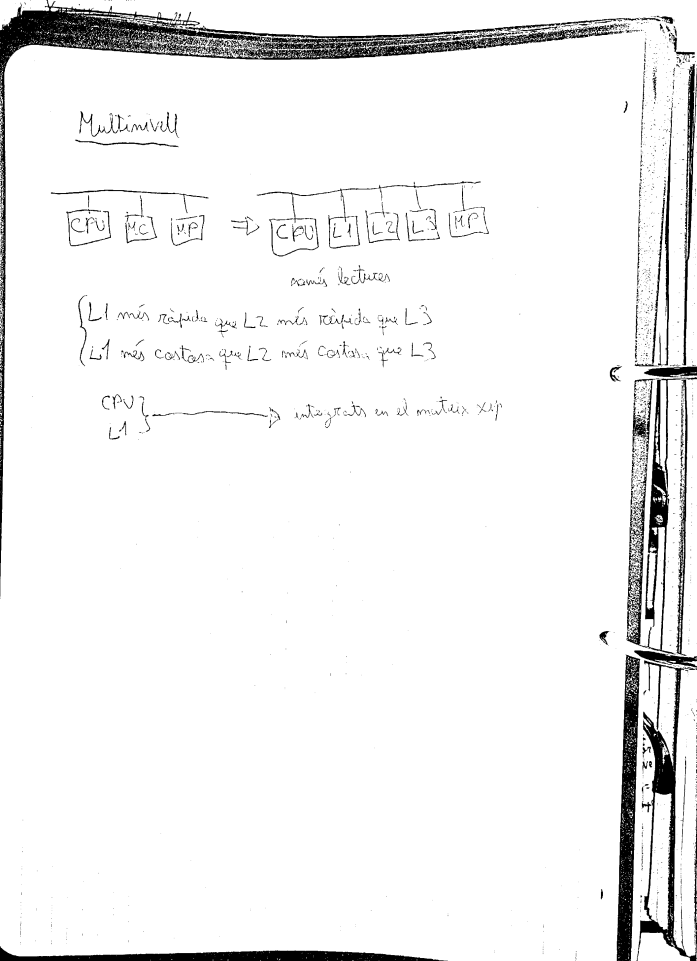 Multinivell
CPU MC MP ⇒ CPU L1 L2 L3 MP
només lectures
L1 més ràpida que L2 més ràpida que L3
L1 més costosa que L2 més costosa que L3
CPU
L1
integrats en el mateix xip